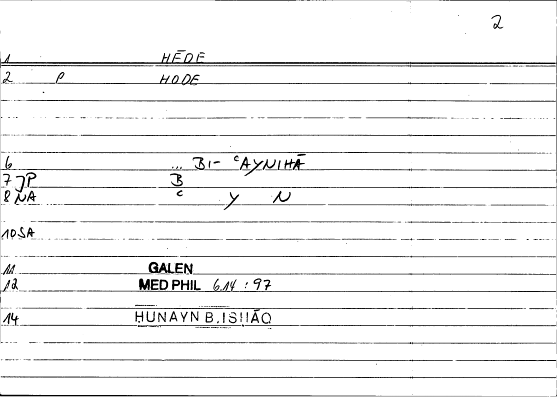 2
1 HĒDE
2 P HODE
6 ... BI- ʿAYNIHĀ
7 JP B
8 NA ʿ Y N
10 SA
11 GALEN
12 MED PHIL 6.14 : 97
14 HUNAYN B. ISḤĀQ